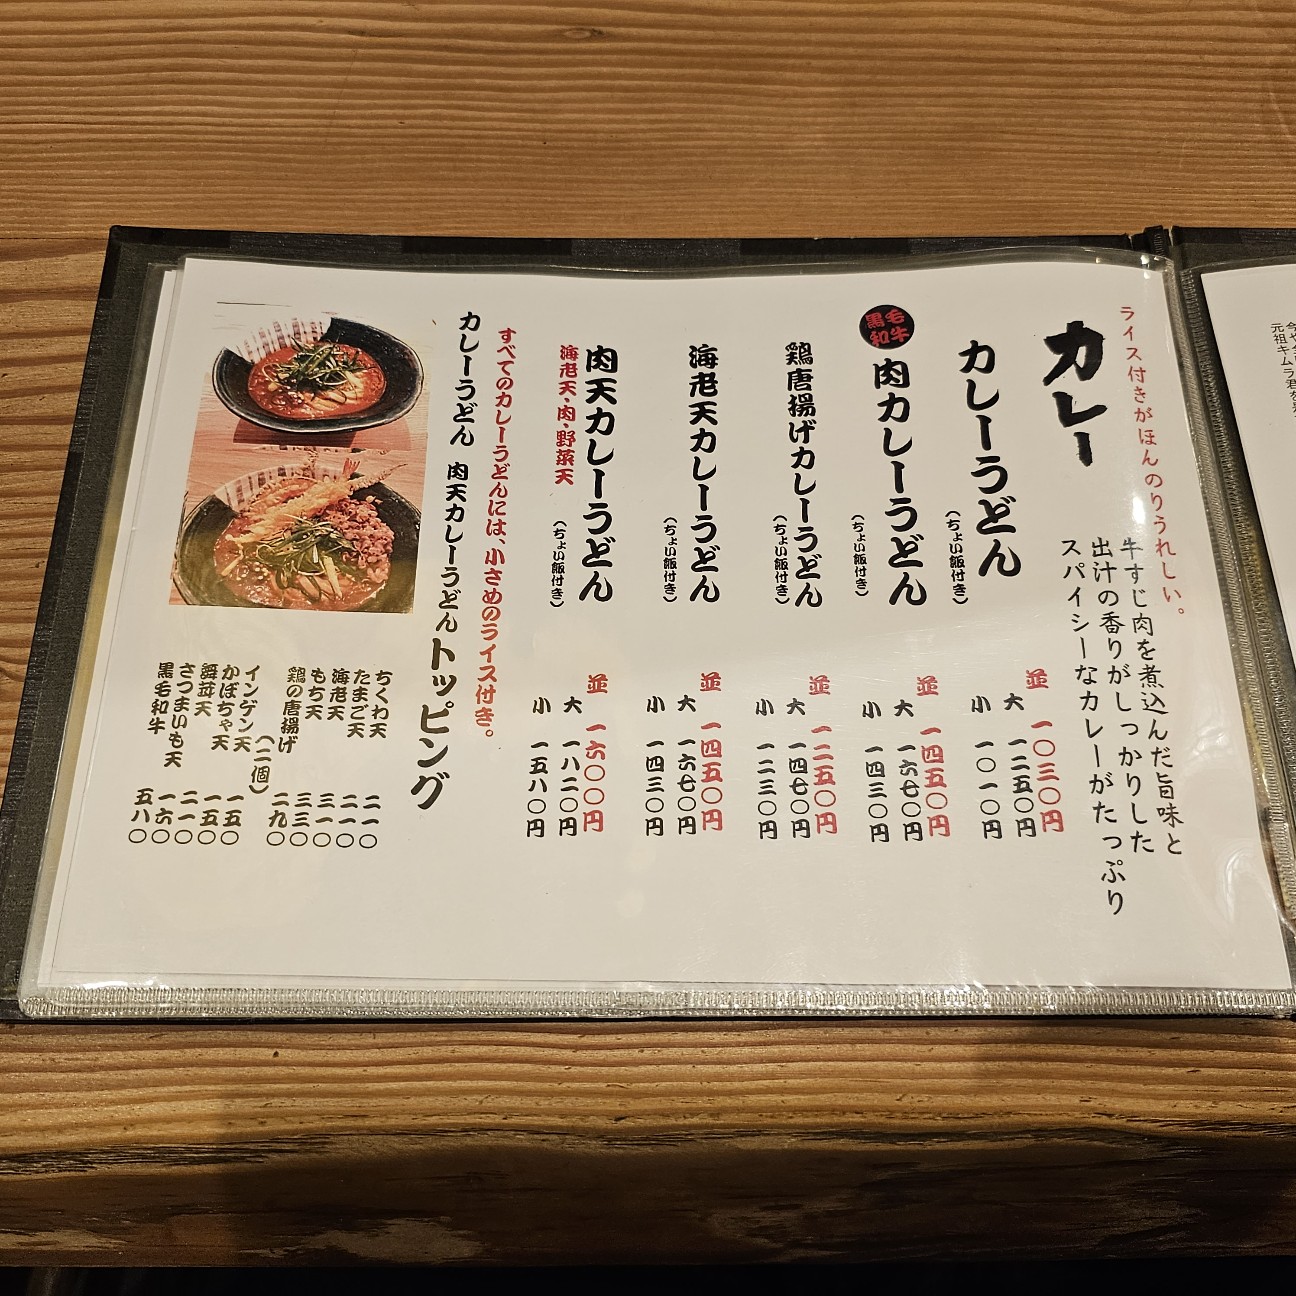 ライス付きがほんのりうれしい。
カレー
牛すじ肉を煮込んだ旨味と
出汁の香りがしっかりした
スパイシーなカレーがたっぷり
カレーうどん
(ちょい飯付き)
並 一〇三〇円
大 一二五〇円
小 一〇一〇円
黒毛和牛
肉カレーうどん
(ちょい飯付き)
並 一四五〇円
大 一六七〇円
小 一四三〇円
鶏唐揚げカレーうどん
(ちょい飯付き)
並 一二五〇円
大 一四七〇円
小 一二三〇円
海老天カレーうどん
(ちょい飯付き)
並 一四五〇円
大 一六七〇円
小 一四三〇円
肉天カレーうどん
海老天・肉・野菜天
(ちょい飯付き)
並 一六〇〇円
大 一八二〇円
小 一五八〇円
すべてのカレーうどんには、小さめのライス付き。
カレーうどん 肉天カレーうどん
トッピング
ちくわ天 二一〇
たまご天 二一〇
海老天 三一〇
もち天 三三〇
鶏の唐揚げ(二個) 二九〇
インゲン天 一五〇
かぼちゃ天 一五〇
舞茸天 二一〇
さつまいも天 一六〇
黒毛和牛 五八〇